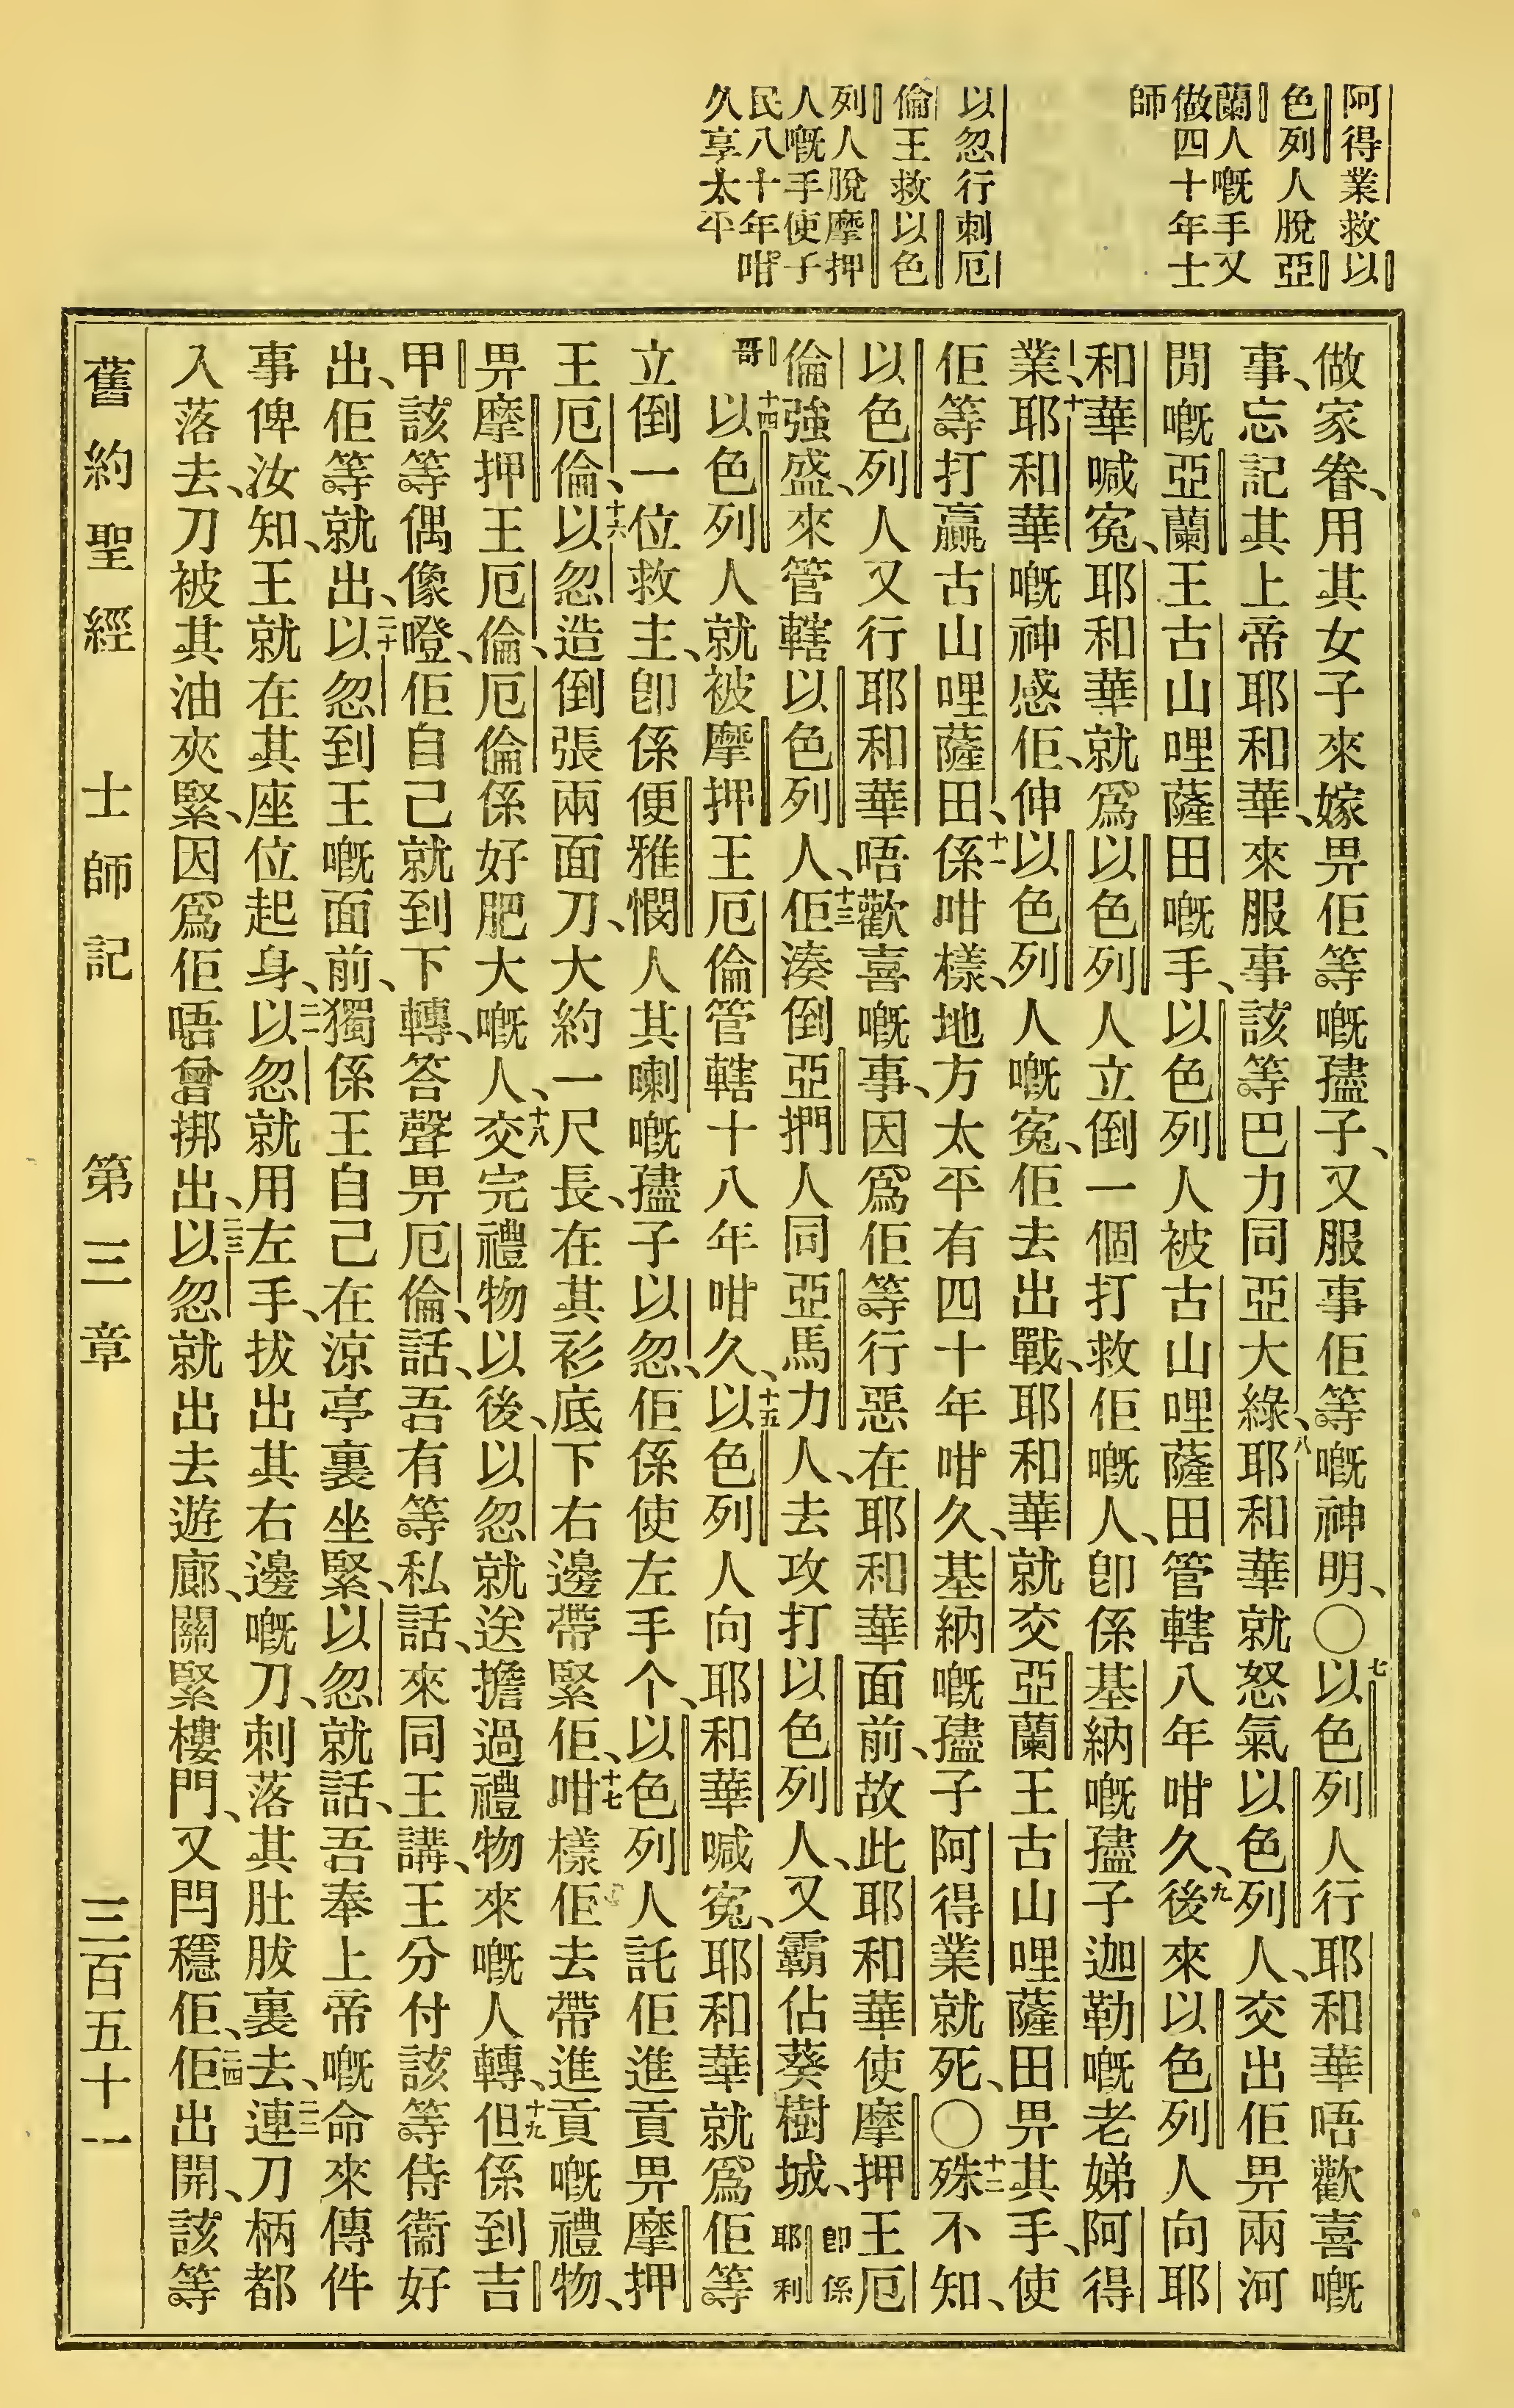 阿得業救以
色列人脫亞
蘭人嘅手又
做四十年士
師
以忽行刺厄
倫王救以色
列人脫摩押
人嘅手使子
民八十年咁
久享太平
做家眷、用其女子來嫁畀佢等嘅孻子、又服事佢等嘅神明、〇七以色列人行耶和華唔歡喜嘅
事、忘記其上帝耶和華、來服事該等巴力同亞大綠、八耶和華就怒氣以色列人、交出佢畀兩河
閒嘅亞蘭王古山哩薩田嘅手、以色列人被古山哩薩田管轄八年咁久、九後來以色列人向耶
和華喊寃、耶和華就爲以色列人立倒一個打救佢嘅人、卽係基納嘅孻子迦勒嘅老娣阿得
業、十耶和華嘅神感佢、伸以色列人嘅寃、佢去出戰、耶和華就交亞蘭王古山哩薩田畀其手、使
佢等打贏古山哩薩田、十一係咁樣、地方太平有四十年咁久、基納嘅孻子阿得業就死、〇十二殊不知、
以色列人又行耶和華唔歡喜嘅事、因爲佢等行惡在耶和華面前、故此耶和華使摩押王厄
倫強盛、來管轄以色列人、十三佢湊倒亞捫人同亞馬力人、去攻打以色列人、又霸佔葵樹城、卽係耶利
哥十四以色列人就被摩押王厄倫管轄十八年咁久、十五以色列人向耶和華喊寃、耶和華就爲佢等
立倒一位救主、卽係便雅憫人其喇嘅孻子以忽、佢係使左手个、以色列人託佢進貢畀摩押
王厄倫、十六以忽造倒張兩面刀、大約一尺長、在其衫底下右邊帶緊佢、十七咁樣佢去帶進貢嘅禮物、
畀摩押王厄倫、厄倫係好肥大嘅人、十八交完禮物以後、以忽就送擔過禮物來嘅人轉、十九但係到吉
甲該等偶像嶝、佢自己就到下轉、答聲畀厄倫、話、吾有等私話、來同王講、王分付該等侍衞好
出、佢等就出、二十以忽到王嘅面前、獨係王自己在涼亭裏坐緊、以忽就話、吾奉上帝嘅命來傳件
事俾汝知、王就在其座位起身、二一以忽就用左手、拔出其右邊嘅刀、刺落其肚胈裏去、二二連刀柄都
入落去、刀被其油夾緊、因爲佢唔曾挷出、二三以忽就出去遊廊、關緊樓門、又閂穩佢、二四佢出開、該等
舊約聖經　士師記　第三章　三百五十一